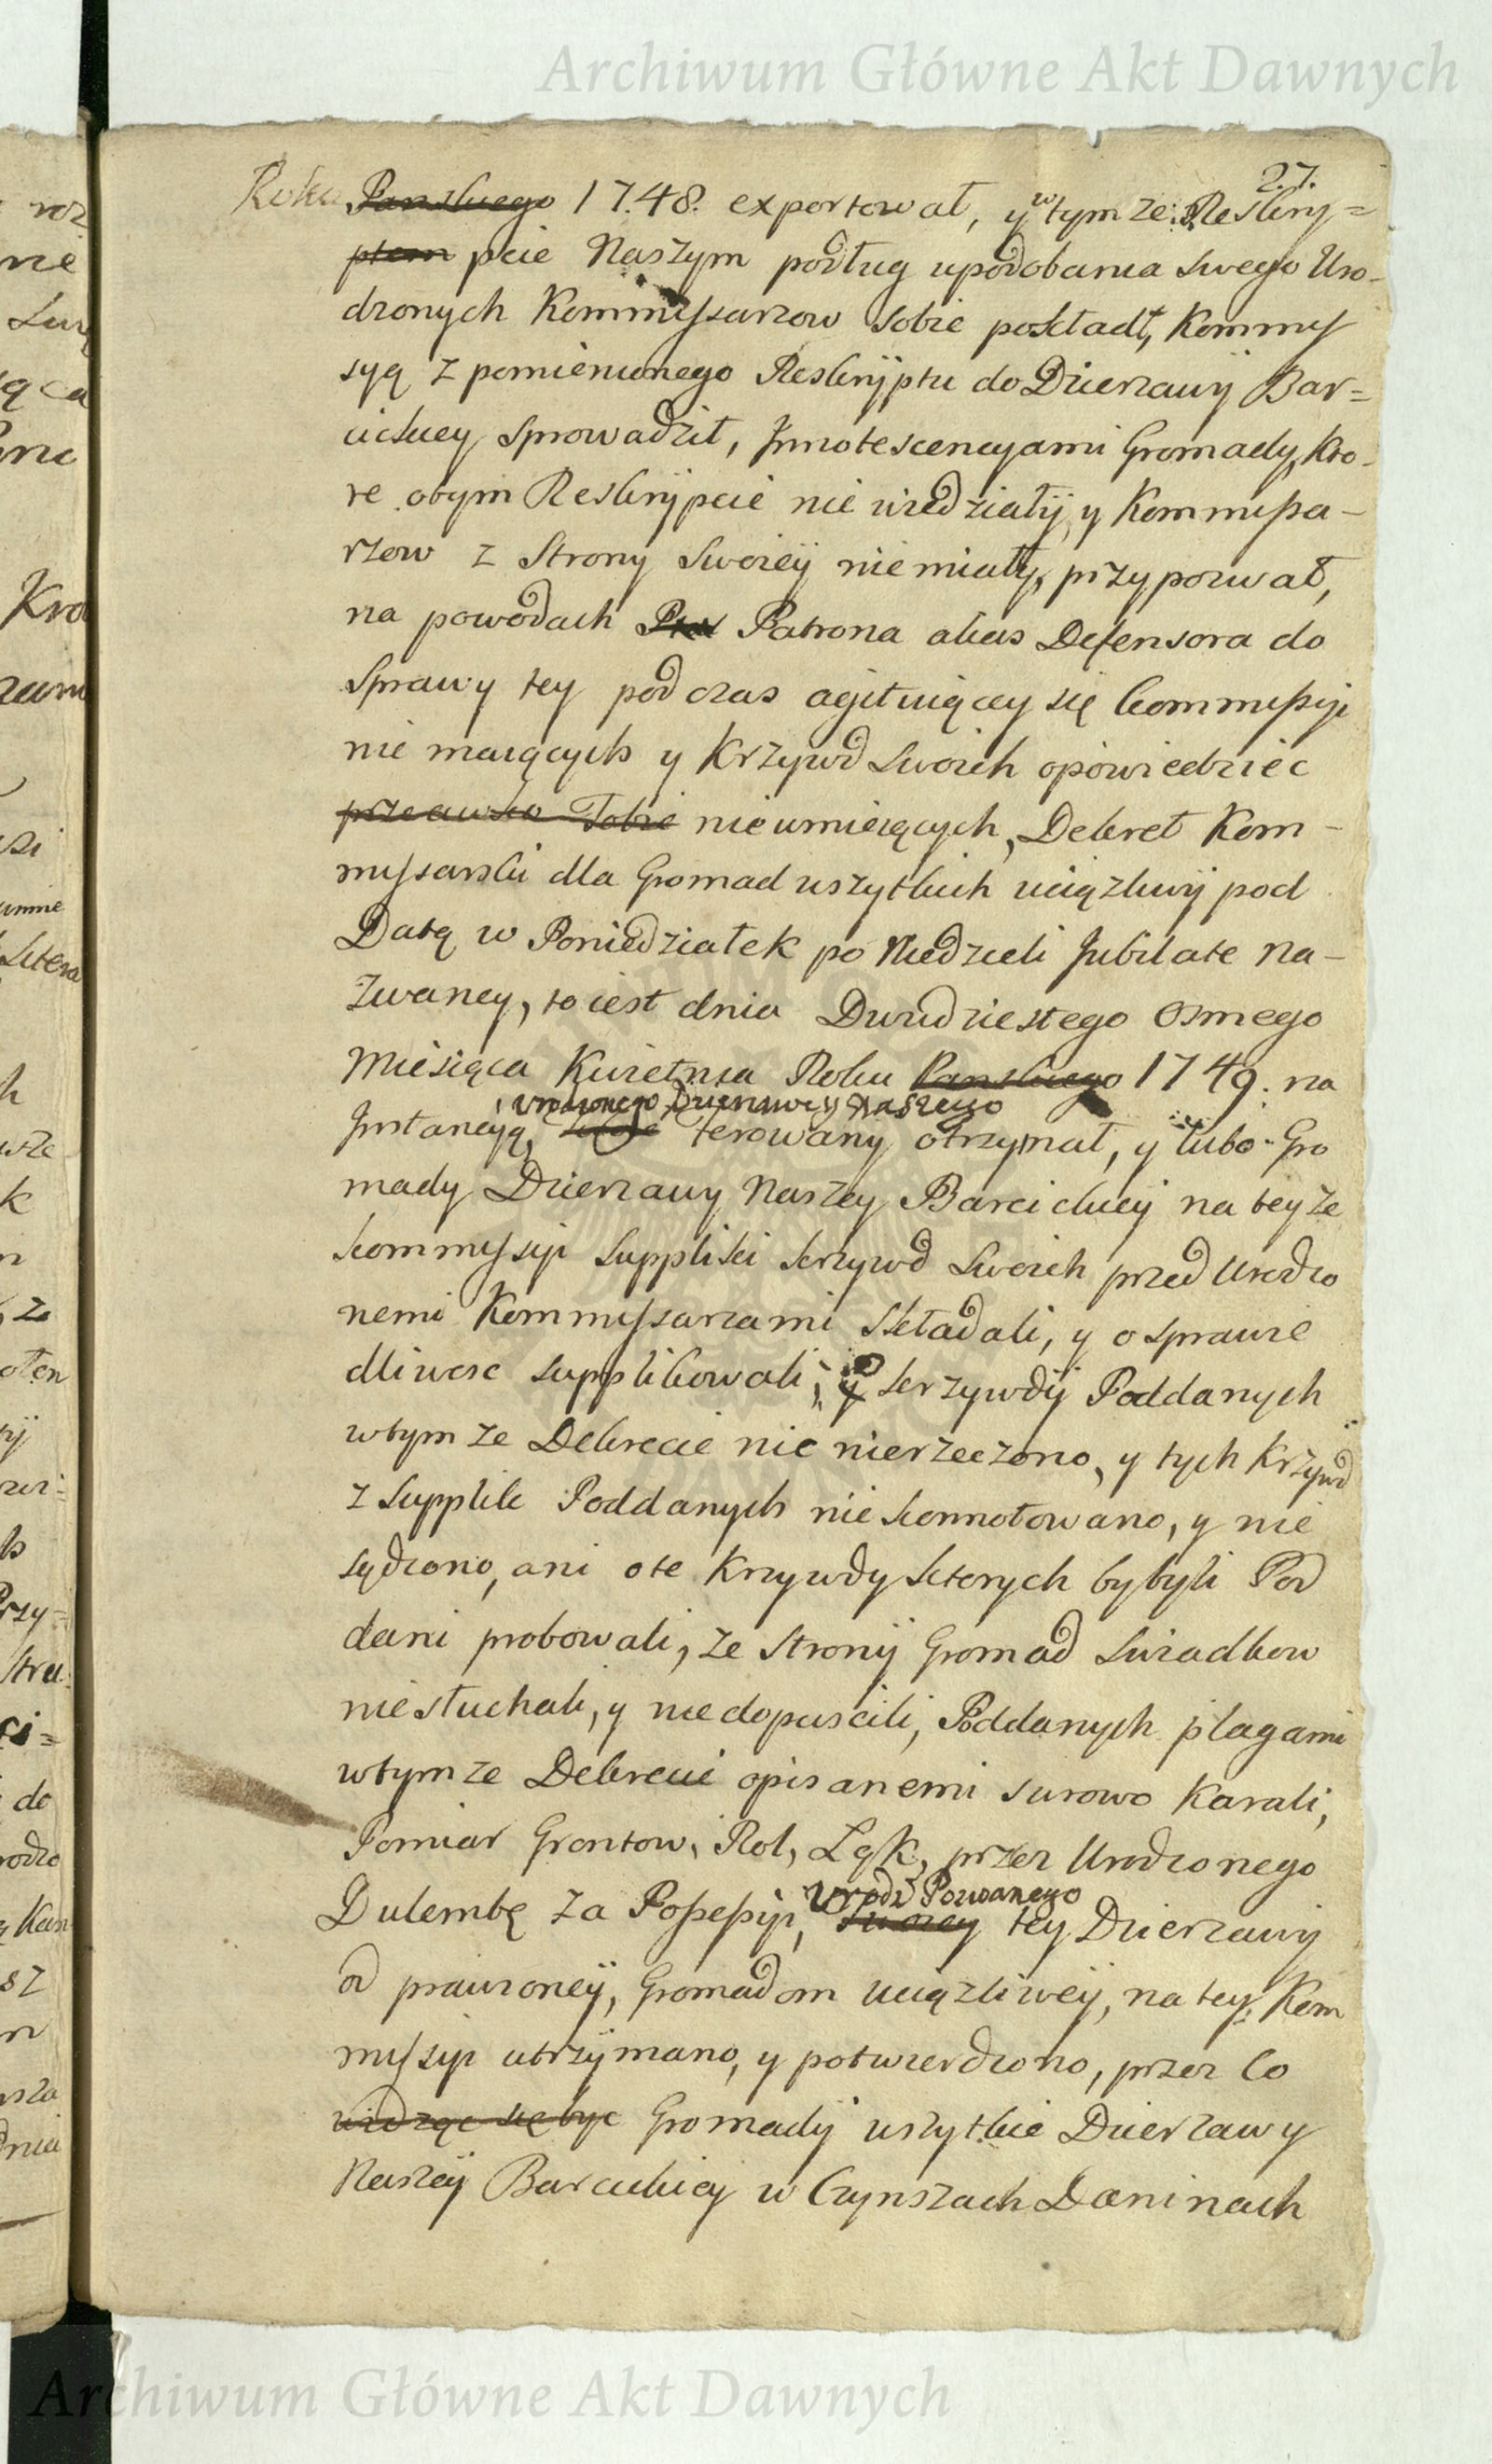 Archiwum Główne Akt Dawnych
27.
Roku Panskiego 1748. exportował, y w tymze Reskry=
ptem pcie Naszym podług upodobania swego Uro-
dzonych Kommyssarzow sobie pokładł, Kommys
syą z pomienionego Reskryptu do Dzierzawy Bar=
cickiey sprowadził, Jnnotescencyami Gromady, kto-
re otym Reskrypcie nie wiedziały, y Kommissa-
rzow z Strony Swoiey niemiały, przypozwał,
na powodach Patrona alias Defensora do
Sprawy tey pod czas agituiącey się Kommissyi
nie maiących y Krzywd Swoich opowiedziec
przeciwko Tobie nieumieiących, Dekret Kom-
myssarski dla Gromad wszytkich uciązliwy pod
Datą w Poniedziałek po Niedzieli Jubilate na-
zwaney, to iest dnia Dwudziestego Osmego
Miesiąca Kwietnia Roku Panskiego 1749. na
urodzonego Dzierzawcy Naszego
Jnstancyą, ferowany otrzymał, y lubo Gro
mady Dzierzawy Naszey Barcickiey na teyze
kommyssyi Suppliki krzywd Swoich przed Urodzo
nemi Kommyssarzami składali, y o sprawie
dliwosc supplikowali, y krzywdy Poddanych
wtymze Dekrecie nic nierzeczono, y tych Krzywd
z Supplik Poddanych nie konnotowano, y nie
sądzono, ani o te Krzywdy ktorych by byli Pod
dani probowali, ze Strony Gromad Swiadkow
niesłuchali, y niedopuscili, Poddanych plagami
wtymze Dekrecie opisanemi surowo Karali,
Pomiar Grontow, Rol, Łąk, przez Urodzonego
Urodz Pozwanego
Dulembę za Possessyi, swoiey tey Dzierzawy
od prawioney, Gromadom uciązliwey, na tey Kom
myssyi utrzymano, y potwierdzono, przez Co
widząc się byc Gromady wszytkie Dzierzawy
Naszey Barcickiey w Czynszach Daninach
Archiwum Główne Akt Dawnych